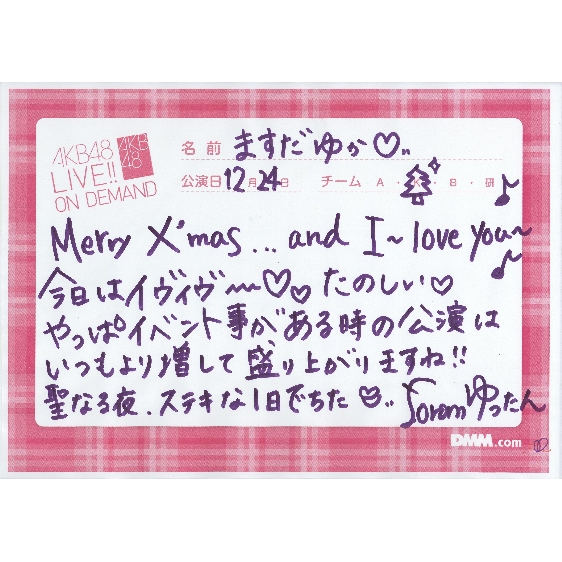 AKB48
LIVE!!
ON DEMAND
AKB
48
名前 ますだゆか♡..
公演日 12月24日 チーム A・K・B・研
Merry X'mas...and I~love you~
今日はイヴイヴ〜♡♡たのしい♡
やっぱイベント事がある時の公演は
いつもより増して盛り上がりますね!!
聖なる夜、ステキな1日でちた♡..
From ゆったん
DMM.com